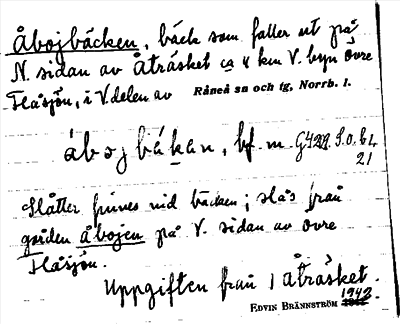 Åbojbäcken, bäck som faller ut på
N. sidan av Åträsket ca 4 km V. byn Övre
Flåsjön, i V. delen av Råneå sn och tg, Norrb. l.
åbojbäkan, bf. m.
21
Slåtter finnes vid bäcken; slås från
gården Åbojen på V. sidan av Övre
Flåsjön.
Uppgiften från 1 Åträsket.
1942.
EDVIN BRÄNNSTRÖM